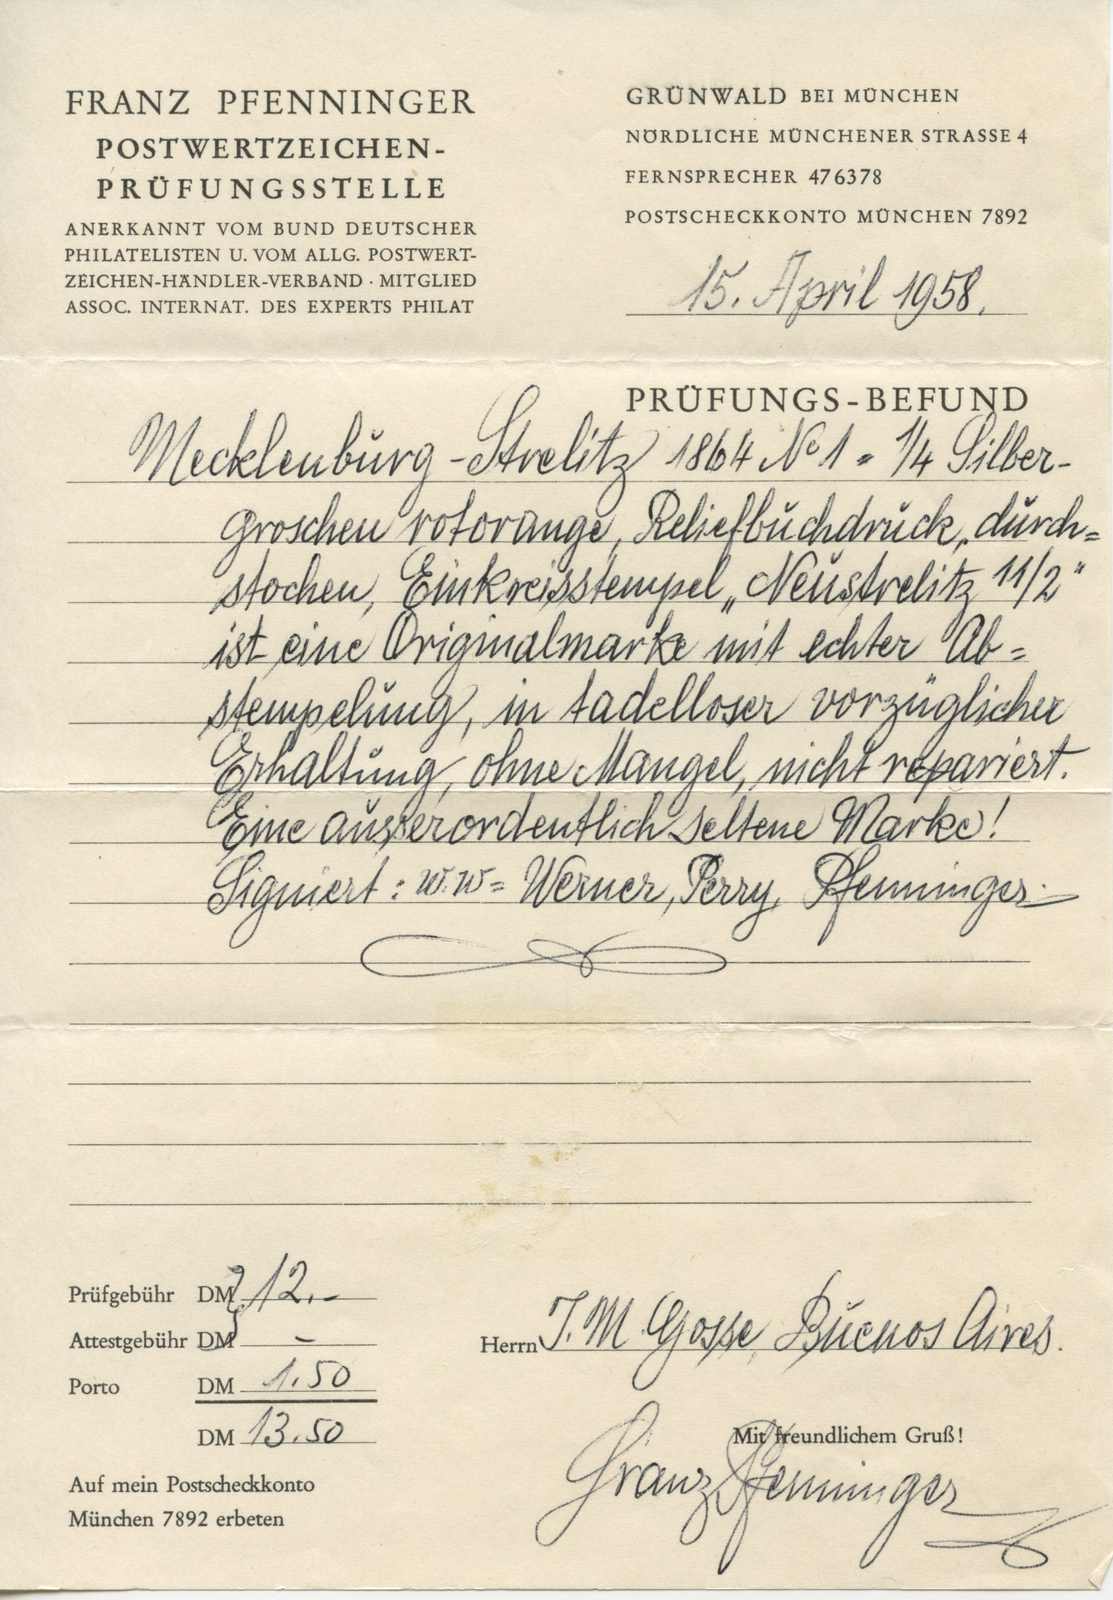 FRANZ PFENNINGER
POSTWERTZEICHEN-
PRÜFUNGSSTELLE
ANERKANNT VOM BUND DEUTSCHER
PHILATELISTEN U. VOM ALLG. POSTWERT-
ZEICHEN-HÄNDLER-VERBAND · MITGLIED
ASSOC. INTERNAT. DES EXPERTS PHILAT
GRÜNWALD BEI MÜNCHEN
NÖRDLICHE MÜNCHENER STRASSE 4
FERNSPRECHER 476378
POSTSCHECKKONTO MÜNCHEN 7892
15. April 1958.
PRÜFUNGS-BEFUND
Mecklenburg-Strelitz 1864 No 1 = 1/4 Silber-
groschen rotorange, Reliefbuchdruck, durch=
stochen, Einkreisstempel „Neustrelitz 11/2"
ist eine Originalmarke mit echter Ab=
stempelung, in tadelloser vorzüglicher
Erhaltung, ohne Mangel, nicht repariert.
Eine ausserordentlich seltene Marke!
Signiert: W.W= Werner, Perry, Pfenninger.
Prüfgebühr DM 12.-
Attestgebühr DM -
Porto DM 1.50
DM 13.50
Auf mein Postscheckkonto
München 7892 erbeten
Herrn J. M. Gosse, Buenos Aires.
Mit freundlichem Gruß!
Franz Pfenninger